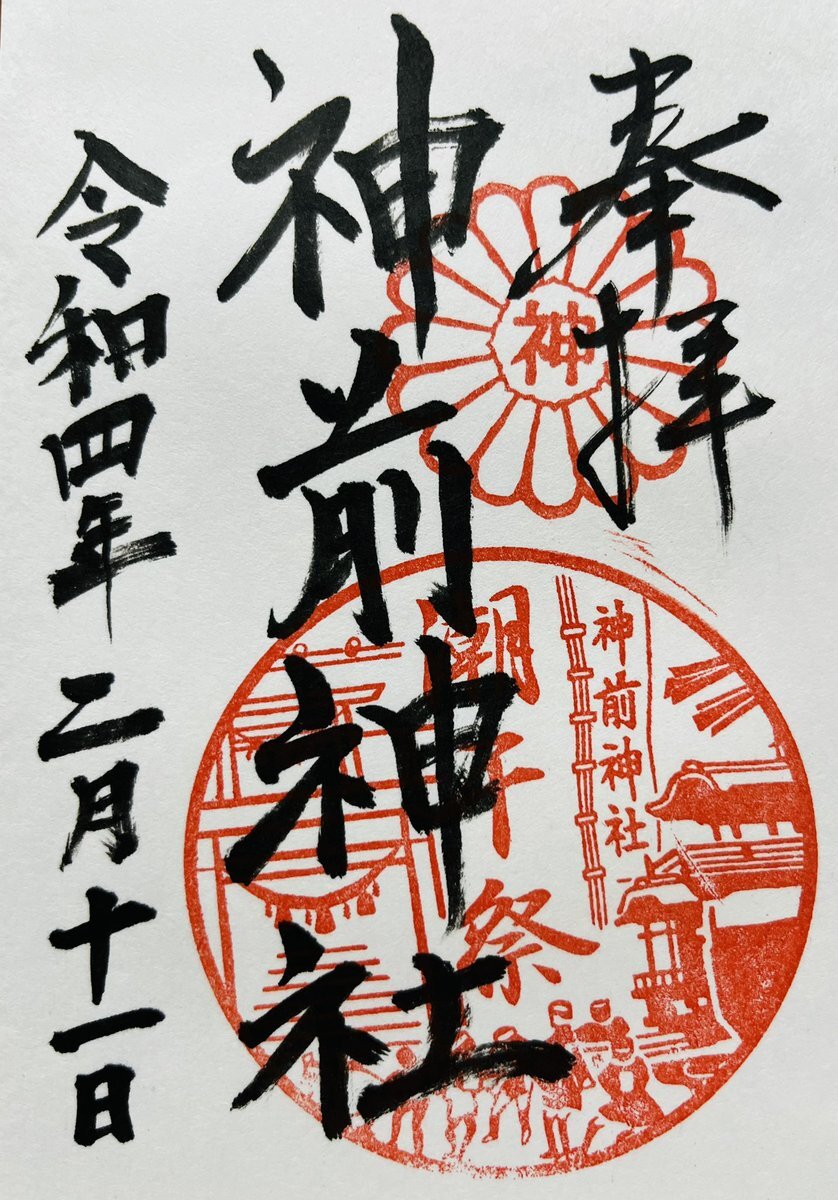 奉拝
神
神前神社
神前神社
潮干祭
令和四年二月十一日